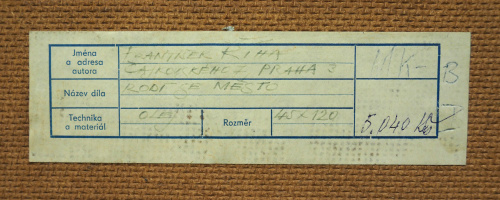 Jména
a adresa
autora
FRANTIŠEK ŘÍHA
PRAHA 3
Název díla
RODÍ SE MĚSTO
Technika
a materiál
OLEJ
Rozměr
45 x 120
5.040 Kčs